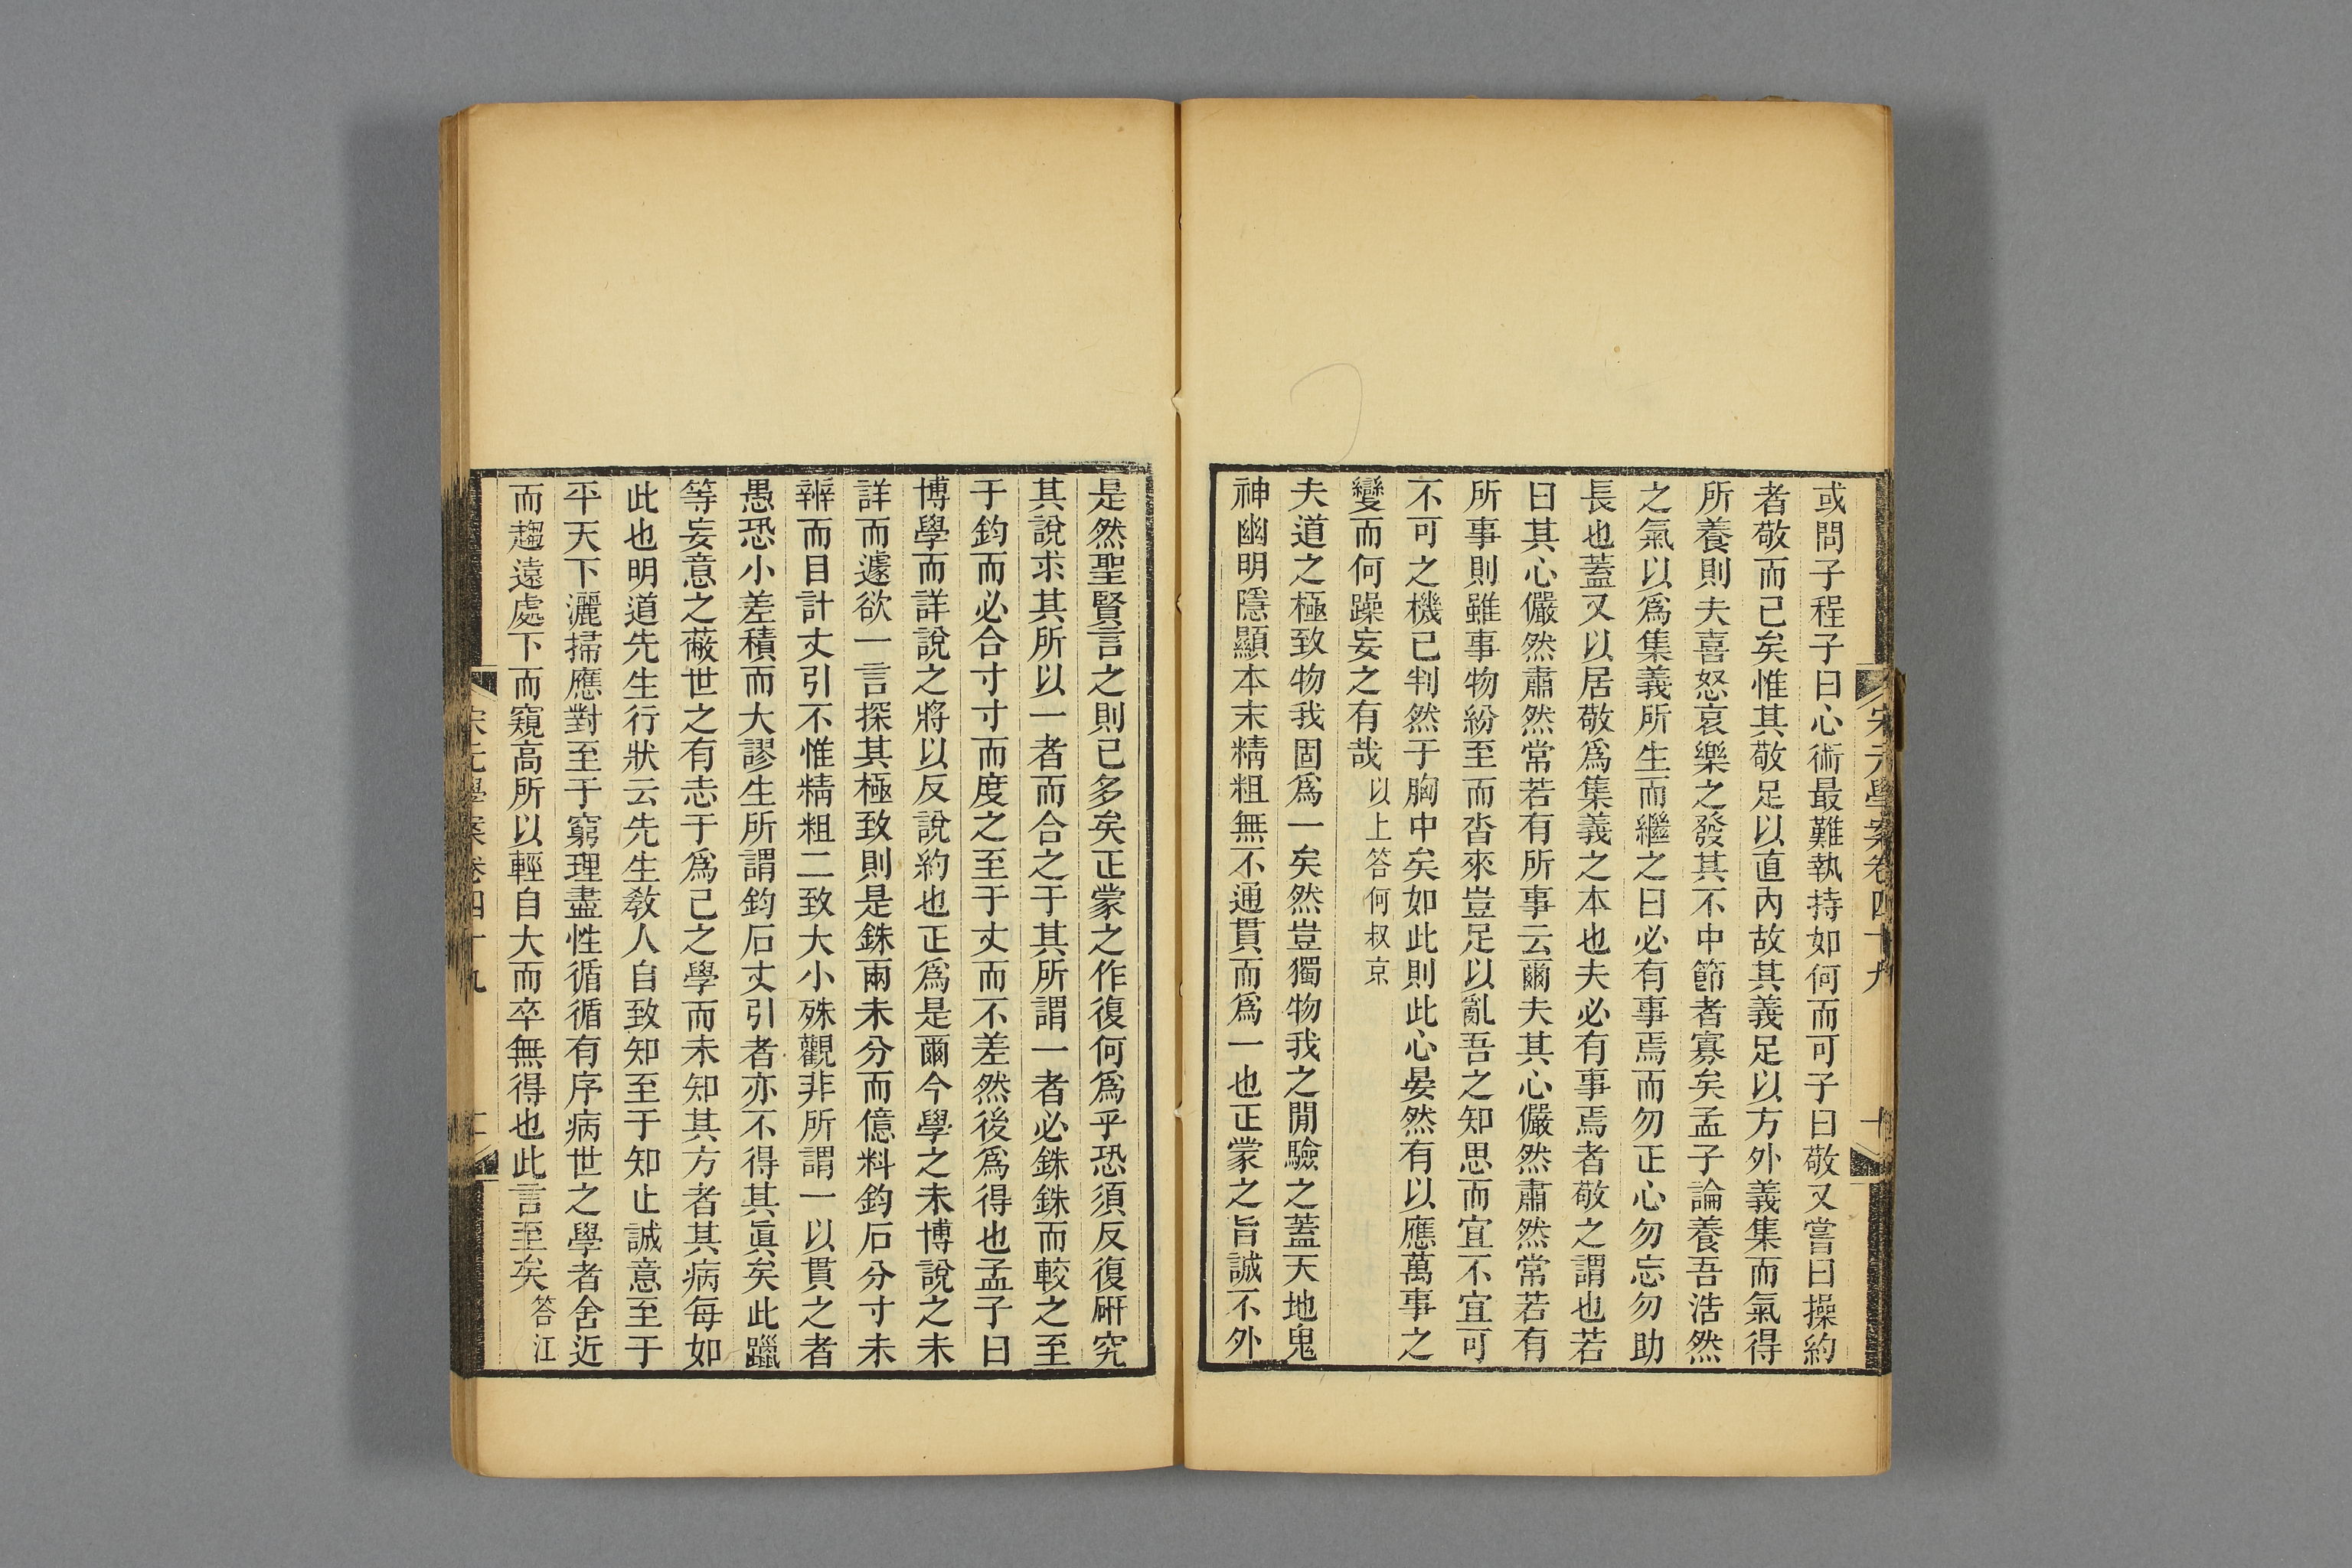 宋元學案卷四十九
十
或問子程子曰心術最難執持如何而可子曰敬又嘗曰操約
者敬而已矣惟其敬足以直內故其義足以方外義集而氣得
所養則夫喜怒哀樂之發其不中節者寡矣孟子論養吾浩然
之氣以爲集義所生而繼之曰必有事焉而勿正心勿忘勿助
長也蓋又以居敬爲集義之本也夫必有事焉者敬之謂也若
曰其心儼然肅然常若有所事云爾夫其心儼然肅然常若有
所事則雖事物紛至而沓來豈足以亂吾之知思而宜不宜可
不可之機已判然于胸中矣如此則此心晏然有以應萬事之
變而何躁妄之有哉以上答何叔京
夫道之極致物我固爲一矣然豈獨物我之閒驗之蓋天地鬼
神幽明隱顯本末精粗無不通貫而爲一也正蒙之旨誠不外
是然聖賢言之則已多矣正蒙之作復何爲乎恐須反復硏究
其說求其所以一者而合之于其所謂一者必銖銖而較之至
于鈞而必合寸寸而度之至于丈而不差然後爲得也孟子曰
博學而詳說之將以反說約也正爲是爾今學之未博說之未
詳而遽欲一言探其極致則是銖兩未分而億料鈞石分寸未
辨而目計丈引不惟精粗二致大小殊觀非所謂一以貫之者
愚恐小差積而大謬生所謂鈞石丈引者亦不得其眞矣此躐
等妄意之蔽世之有志于爲己之學而未知其方者其病每如
此也明道先生行狀云先生敎人自致知至于知止誠意至于
平天下灑掃應對至于窮理盡性循循有序病世之學者舍近
而趨遠處下而窺高所以輕自大而卒無得也此言至矣答江
宋元學案卷四十九